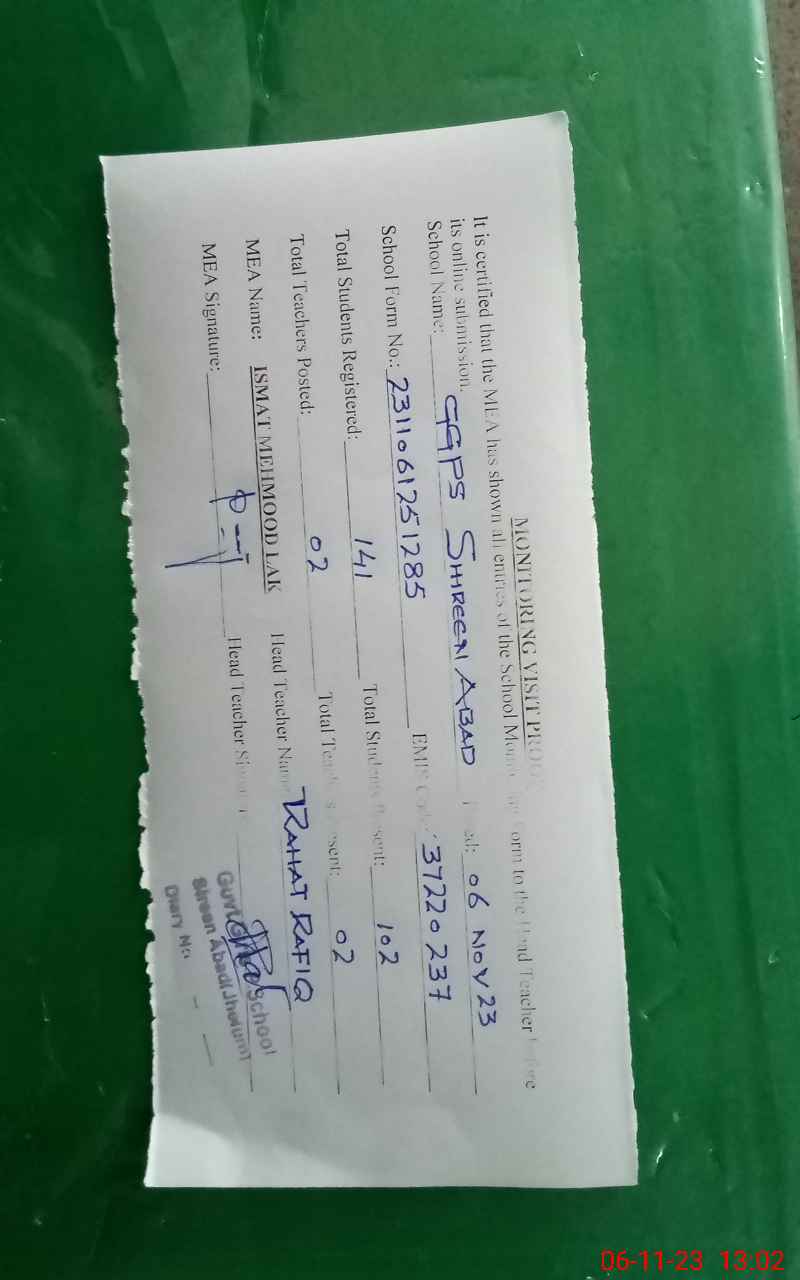 MONITORING VISIT PROO
It is certified that the MEA has shown all entries of the School Form to the Head Teacher
its online submission.
School Name: GGPS SHIREEN ABAD 06 NOV 23
School Form No.: 2311061251285 EMIS Code: 37220237
Total Students Registered: 141 Total Students Present: 102
Total Teachers Posted: 02 Total Teachers Present: 02
MEA Name: ISMAT MEHMOOD LAK Head Teacher Name RAHAT RAFIQ
MEA Signature: Head Teacher
Govt School
Sireen Abad (Jhelum)
Diary No
06-11-23 13:02